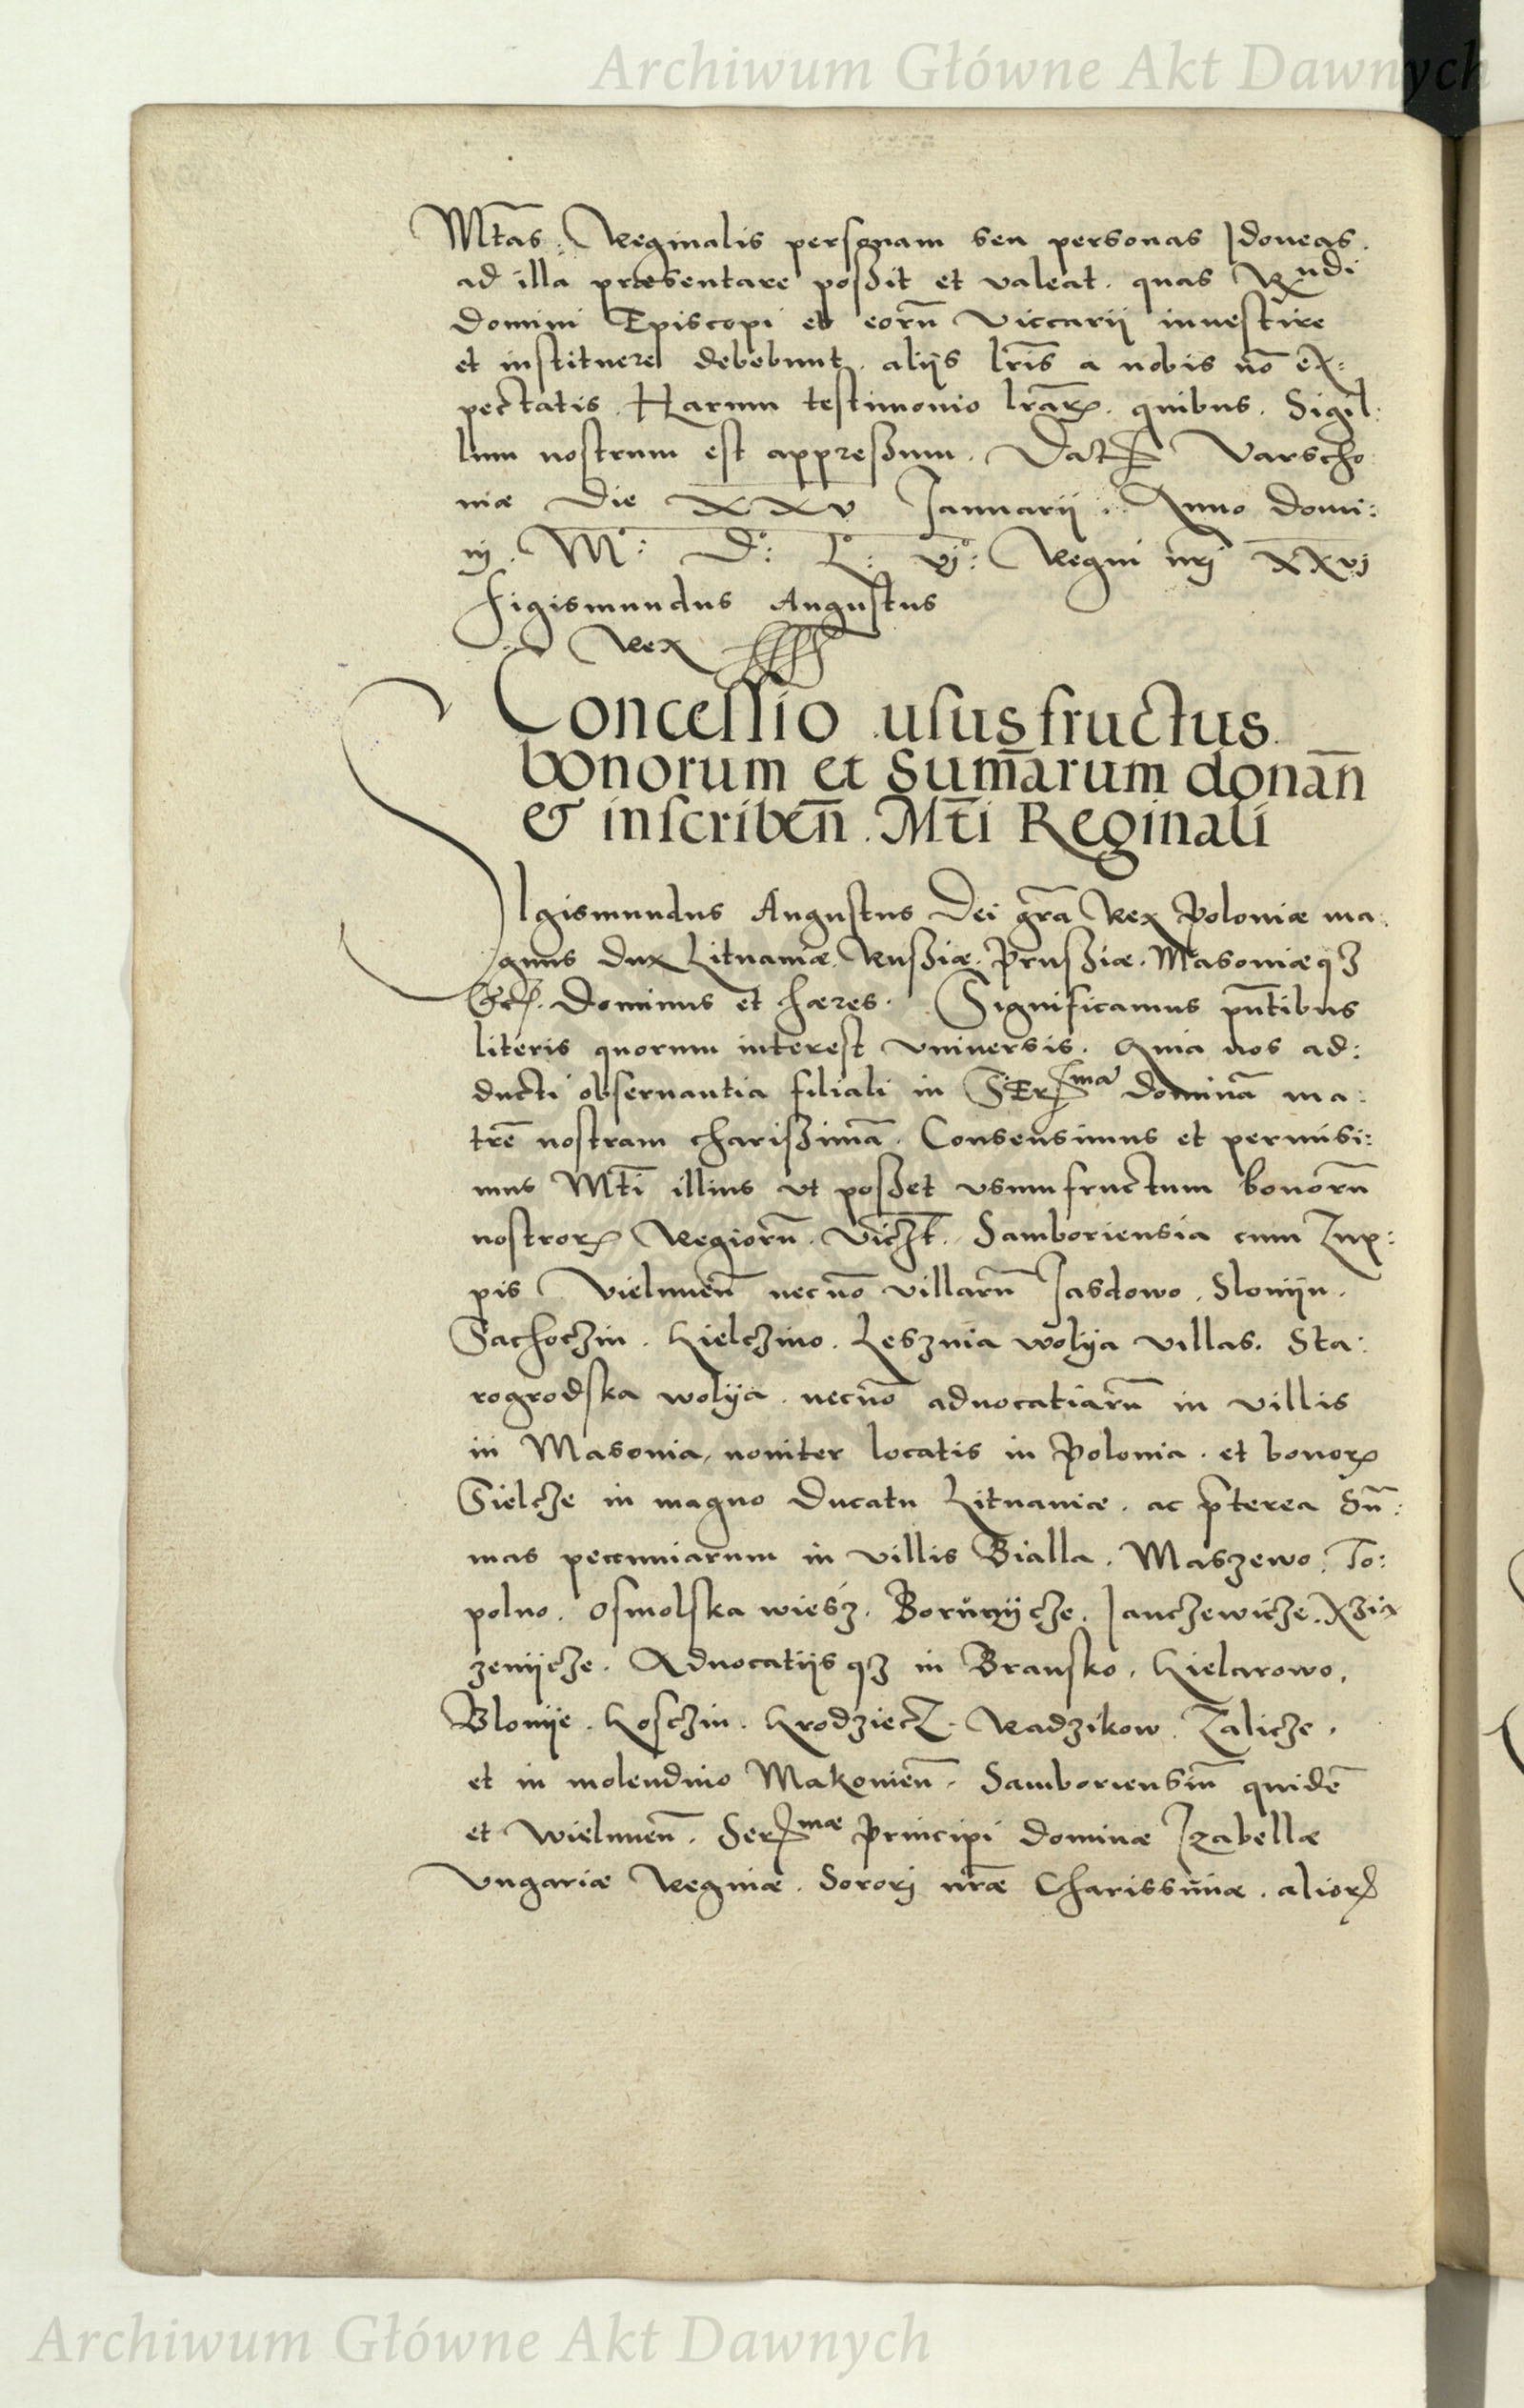 Archiwum Główne Akt Dawnych
Mtãs. Reginalis personam seu personas Idoneas.
ad illa præsentare poßit et valeat. quas Rndi
Domini Episcopi et eorũ Viccarii inuestire
et instituere debebunt. aliÿs lr̃is a nobis nõ ex:
pectatis. Harum testimonio lrãrꝝ. quibus. Sigil:
lum nostrum est appreßum. Dat Varscho
uiæ Die XXV Januarii. Anno Domi:
nj. Mº: Dº: Lº: vjº: Regni nr̃j XXvj
Sigismundus Augustus
Rex
Concessio ususfructus
bonorum et Sum̃arum donañ
& inscribeñ. Mt̃i Reginali
SIgismundus Augustus Dei grã Rex Poloniæ ma:
gnus Dux Lituaniæ. Rußiæ. Prußiæ. Masouiæqꝫ
Etc. Dominus et hæres. Significamus pñtibus
literis quorum interest vniuersis. Quia nos ad:
ducti obseruantia filiali in SEr^ma Dominã ma:
trẽ nostram charißimã. Consensimus et permisi:
mus Mt̃i illius vt poßet vsumfructum bonorũ
nostrorꝝ Regiorũ. Viczt. Samboriensia cum Zup:
pis Vielmueñ necnõ villarũ Jasdowo. Sloniin.
Sachoczin. Kielczino. Lesznia wolÿa villas. Sta:
rogrodska wolÿa. necnõ aduocatiarũ in villis
in Masouia, nouiter locatis in Polonia. et bonorꝝ
Sielcze in magno Ducatu Lituaniæ. ac pr̃terea Sũ:
mas pecuniarum in villis Bialla. Maszewo. To:
polno. Osmolska wiesz. Borünÿcze. Janczewicze.
zenÿcze. Aduocatiis qꝫ in Bransko. Kielarowo.
Blonÿe. Kosczin. Grodziecz. Radzikow. Zalicze.
et in molendino Makonieñ. Samboriensiũ quidẽ
et Wielmueñ. Ser^mæ Principi Dominæ Izabellæ
Vngariæ Reginæ. Sororj nr̃æ Charissimæ. aliorꝝ
Archiwum Główne Akt Dawnych